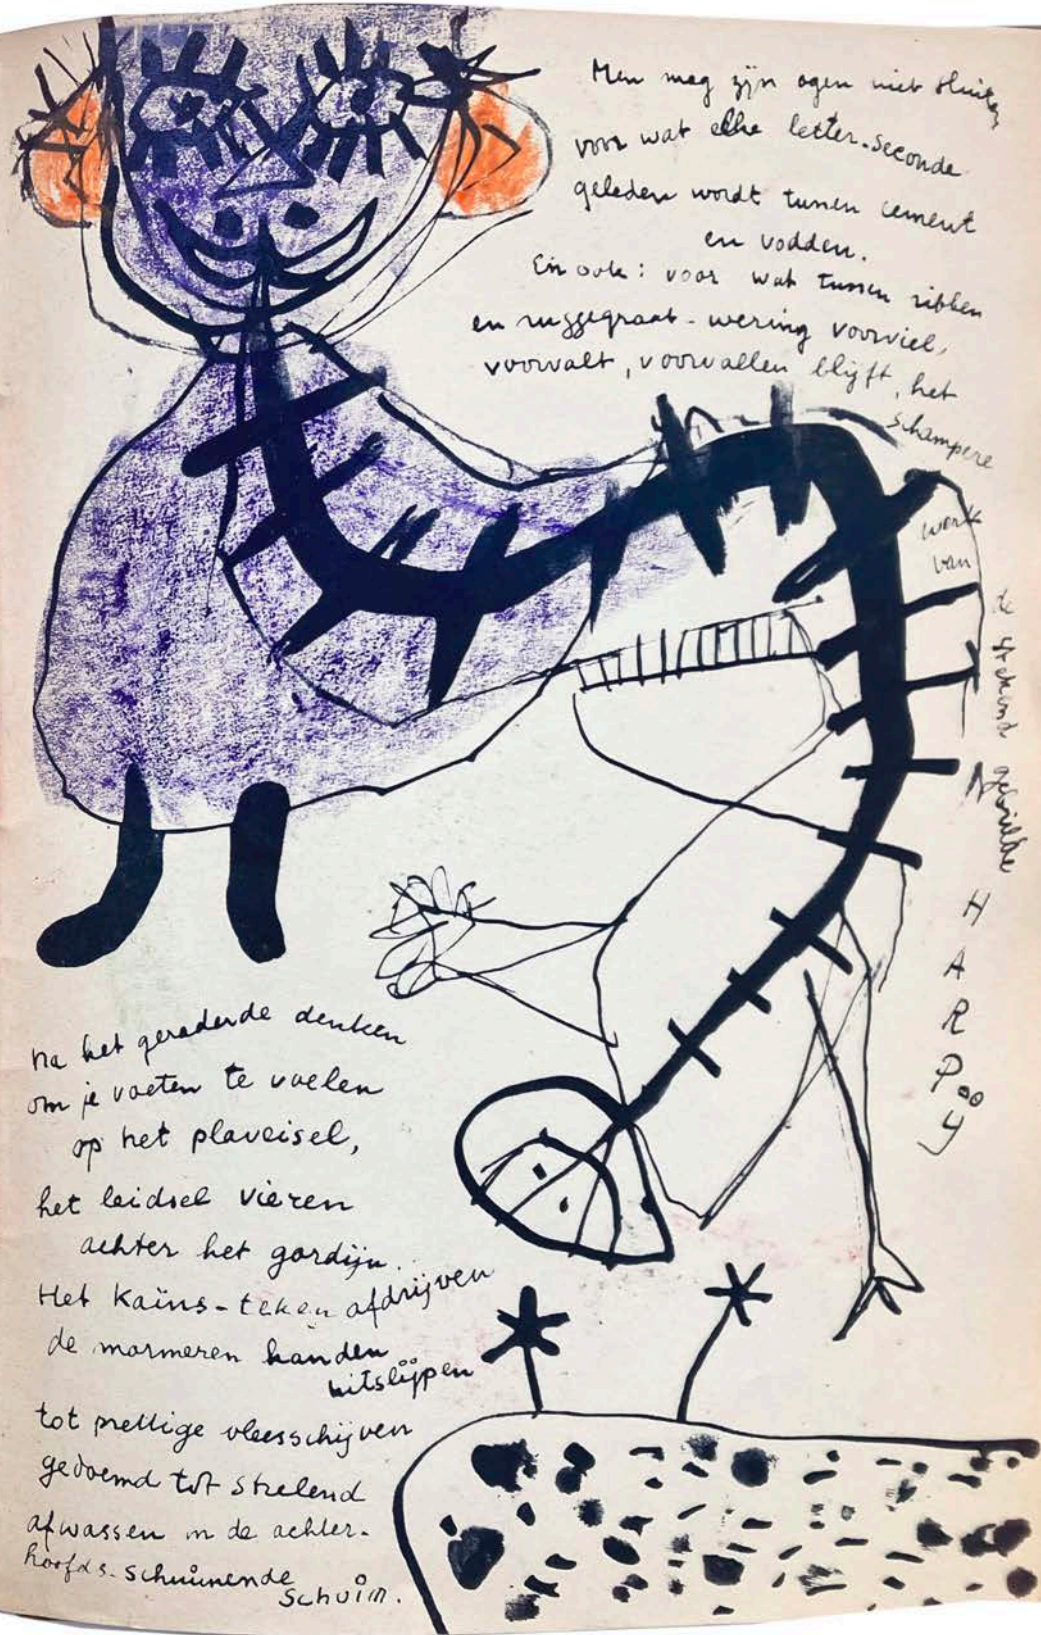 Men mag zijn ogen niet sluiten
voor wat elke letter-seconde
geleden wordt tussen cement
en vodden.
En ook: voor wat tussen ribben
en ruggegraat-wering voorviel,
voorvalt, voorvallen blijft, het
schampere
werk
van
de
gebrilde
HARPooY
Na het geraderde denken
om je voeten te voelen
op het plaveisel,
het leidsel vieren
achter het gordijn.
Het Kaïns-teken afdrijven
de marmeren handen
uitslijpen
tot prettige vleesschijven
gedoemd tot strelend
afwassen in de achter-
hoofds-schuimende
schuim.